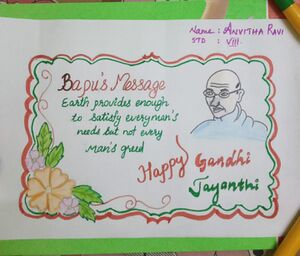 Name : ANVITHA RAVI
STD : VIII.
Bapu's Message
Earth provides enough
to satisfy everyman's
needs but not every
Man's greed
Happy Gandhi
Jayanthi